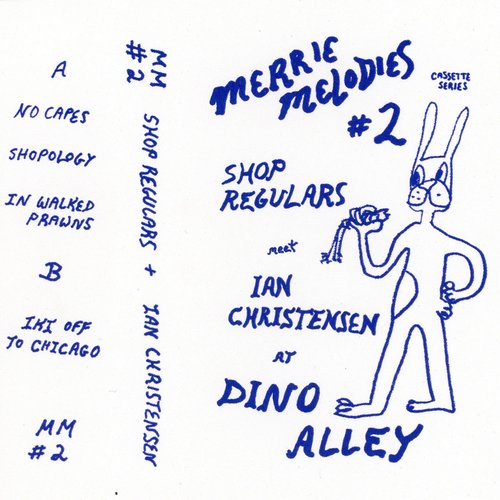 A
NO CAPES
SHOPOLOGY
IN WALKED
PRAWNS
B
IKI OFF
TO CHICAGO
MM
#2
MM
#2
SHOP REGULARS + IAN CHRISTENSEN
MERRIE
MELODIES
#2
CASSETTE
SERIES
SHOP
REGULARS
meet
IAN
CHRISTENSEN
AT
DINO
ALLEY